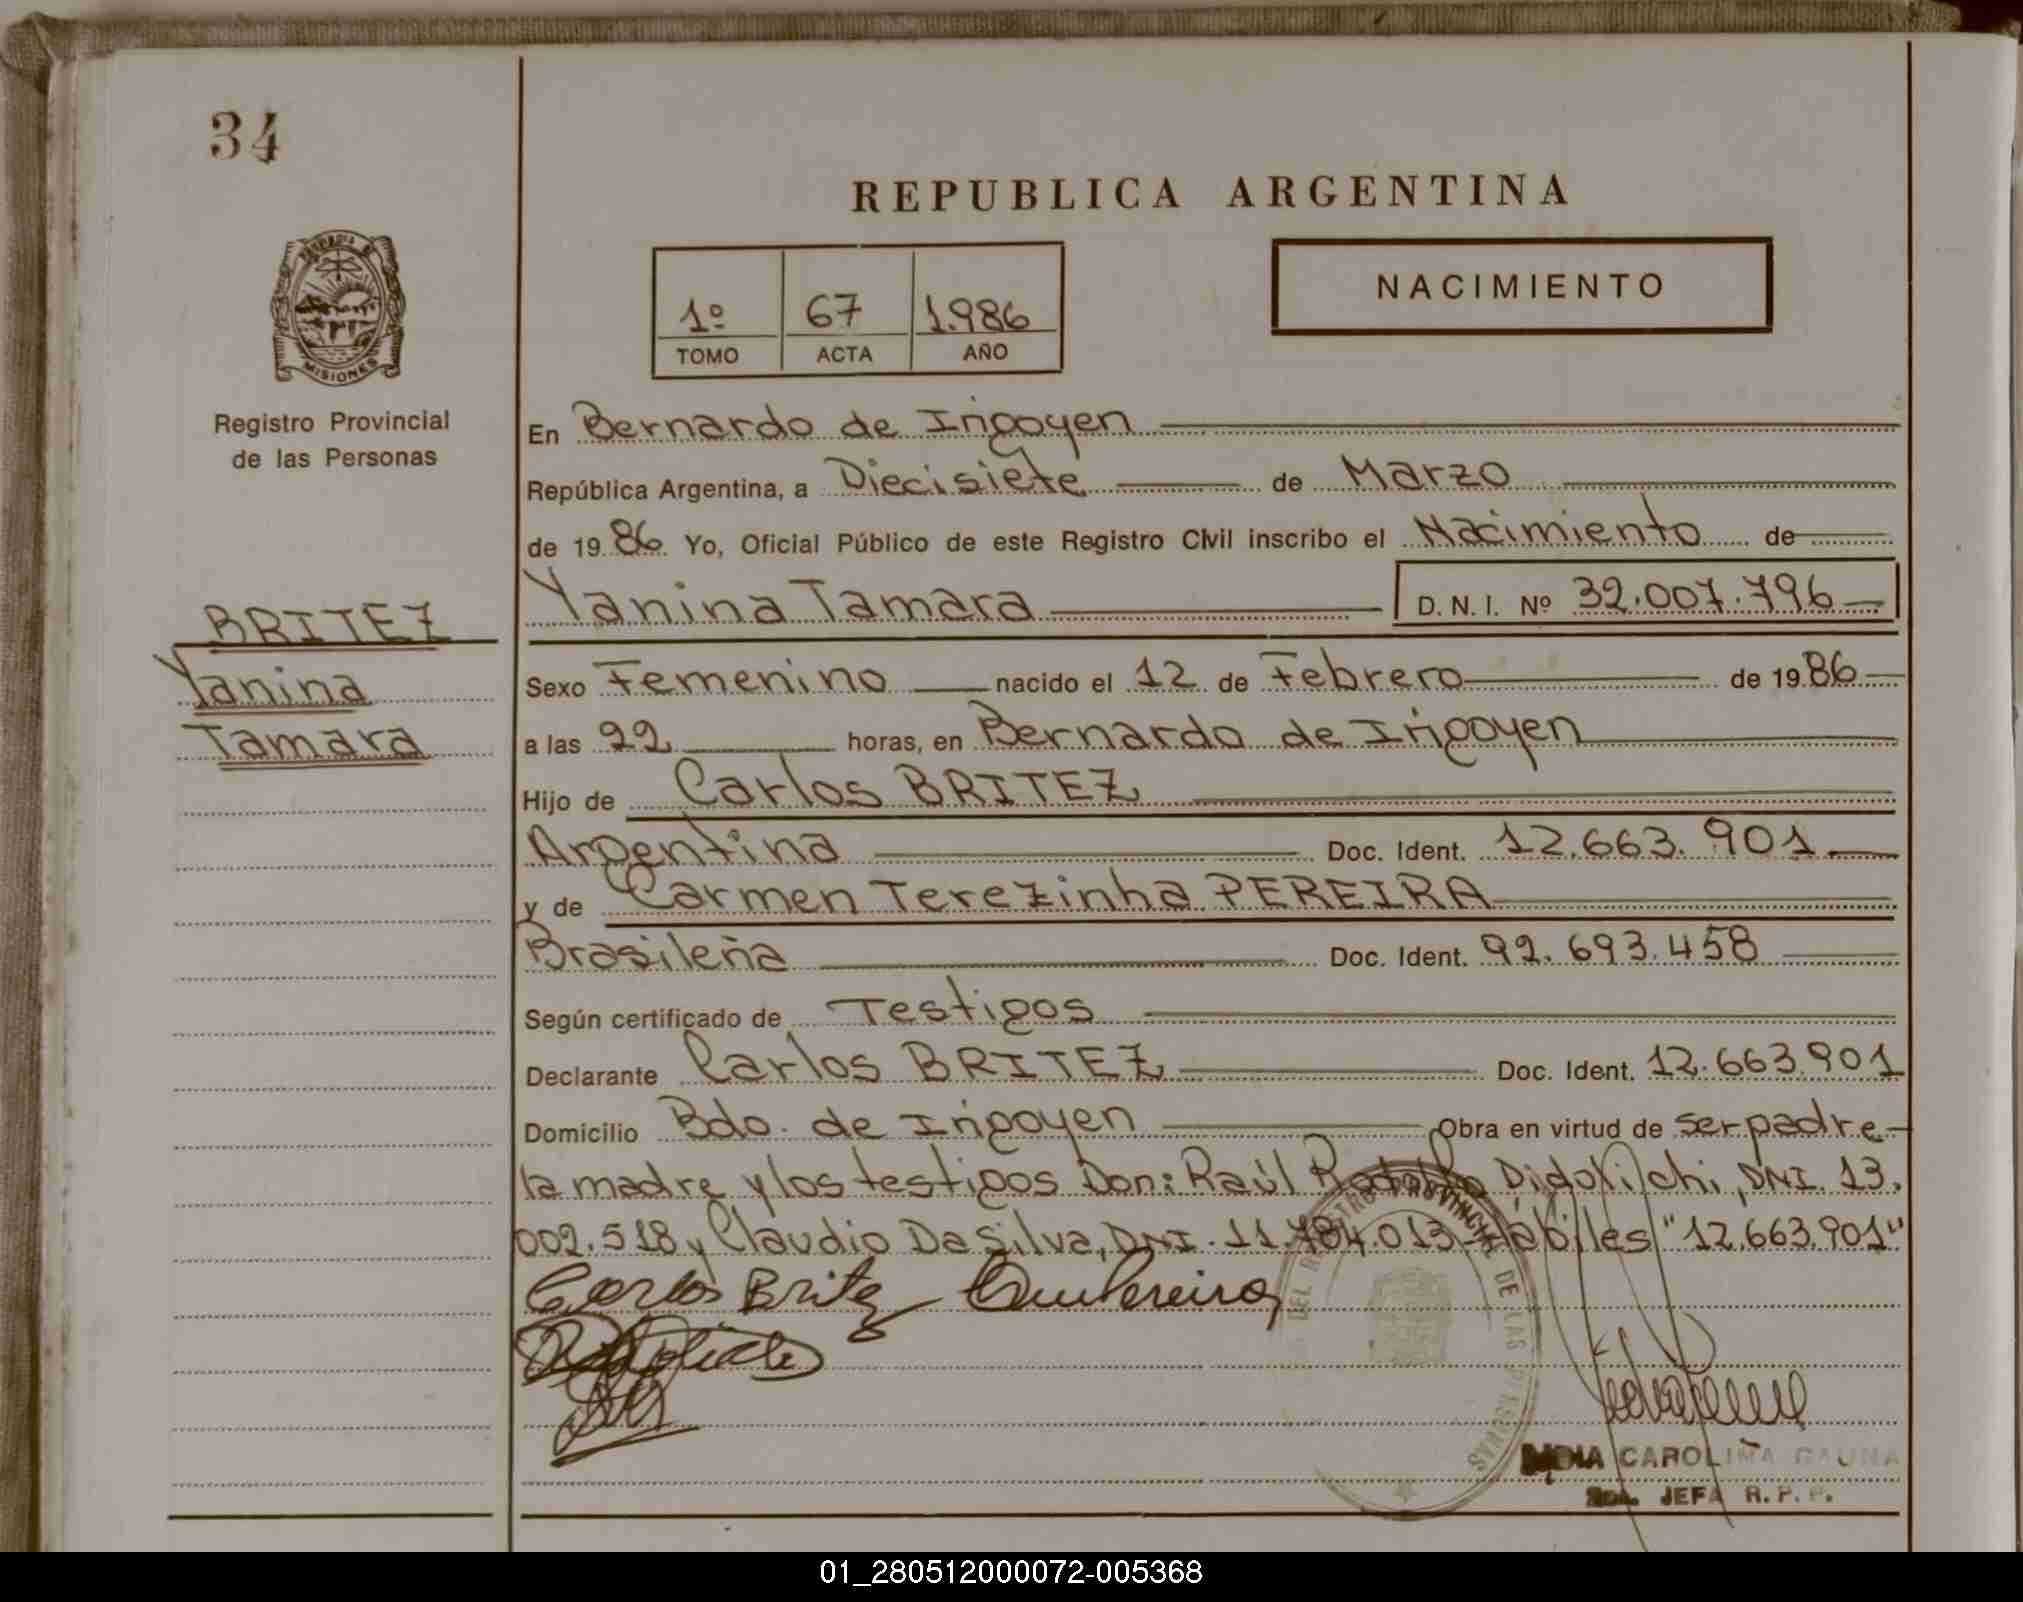 34
REPUBLICA ARGENTINA
1º 67 1.986
TOMO ACTA AÑO
NACIMIENTO
MISIONES
Registro Provincial
de las Personas
BRITEZ
Yanina
Tamara
En Bernardo de Irigoyen
República Argentina, a Diecisiete de Marzo
de 1986 Yo, Oficial Público de este Registro Civil inscribo el Nacimiento de
Yanina Tamara D. N. I. Nº 32.007.796
Sexo Femenino nacido el 12 de Febrero de 1986
a las 22 horas, en Bernardo de Irigoyen
Hijo de Carlos BRITEZ
Argentina Doc. Ident. 12.663.901
y de Carmen Terezinha PEREIRA
Brasileña Doc. Ident. 92.693.458
Según certificado de Testigos
Declarante Carlos BRITEZ Doc. Ident. 12.663.901
Domicilio Bdo. de Irigoyen Obra en virtud de ser padre
la madre y los testigos Don: Raúl Rodolfo Didolichi, DNI. 13.
002.518 y Claudio Da Silva, DNI. 11.784.013 Hábiles "12.663.901"
Carlos Britez Pereira
DEL REGISTRO PROVINCIAL DE LAS PERSONAS
CAROLINA GAUNA
JEFA R. P. P.
01_280512000072-005368